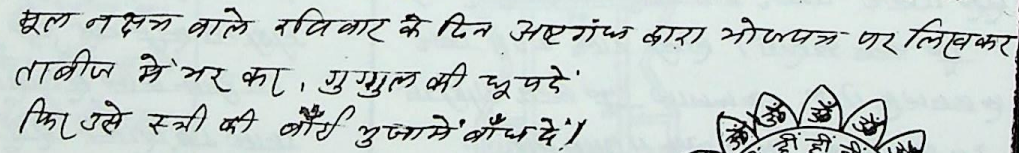 मूल नक्षत्र वाले रविवार के दिन अष्टगंध द्वारा भोजपत्र पर लिखकर
ताबीज में भर कर, गुग्गुल की धूप दें
फिर उसे स्त्री की बाँई भुजा में बाँध दें!
ॐ ॐ ॐ ॐ
ह्रीं ह्रीं